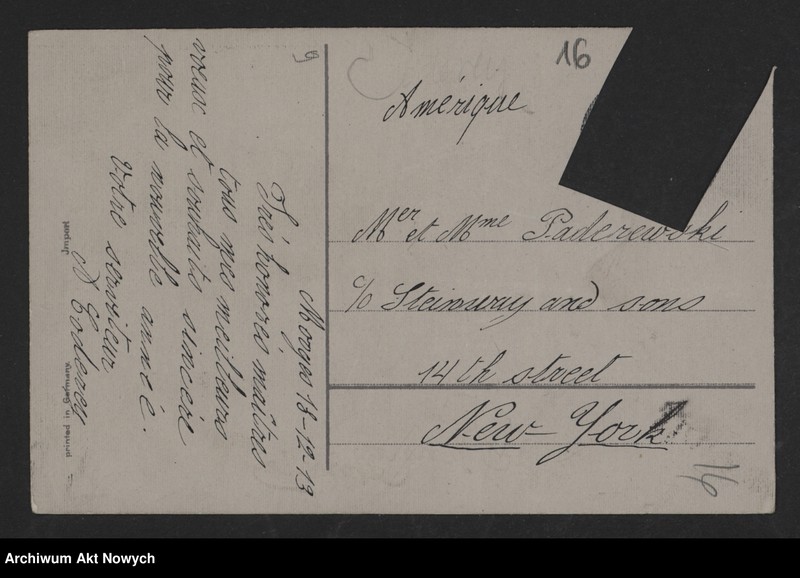 16
Amérique
Mer et Mme Paderewski
c/o Steinwey and sons
14th street
New-York.
16
9
Morges 18-12-13
Très honorés maîtres
tous mes meilleurs
voeux et souhaits sincère
pour la nouvelle année.
Votre serviteur
Import
printed in Germany
Archiwum Akt Nowych